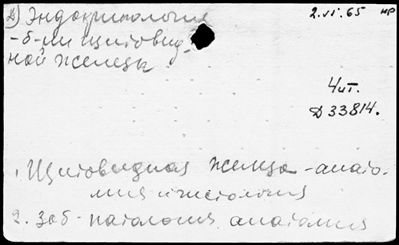 2) Эндокринология
2.VI.65 НР
-б-ни щитовид-
ной железы
Чит.
Д 33814.
1. Щитовидная железа - анато-
мия и гистология
2. Заб- патология анатомия